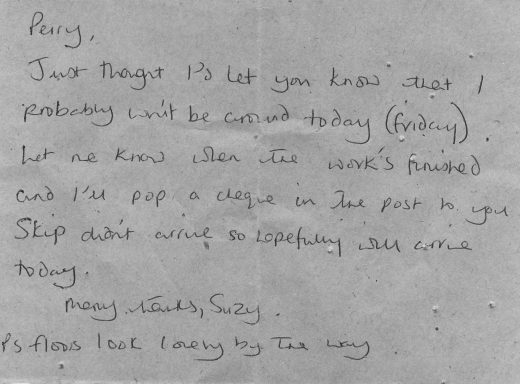 Perry,
Just thought I'd let you know that I
probably won't be around today (friday).
Let me know when the work's finished
and I'll pop a cheque in the post to you
Skip didn't arrive so hopefully will arrive
today.
Many thanks, Suzy.
Ps floors look lovely by the way